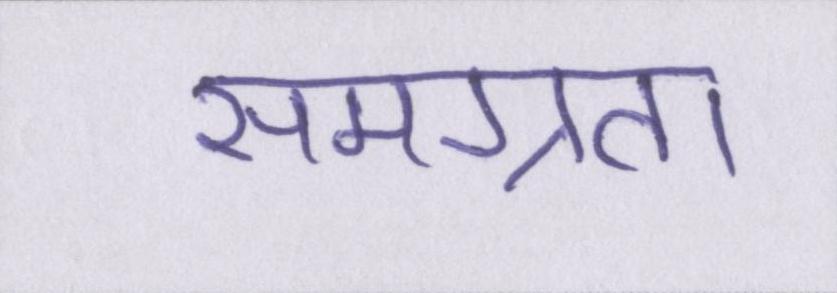 समग्रता